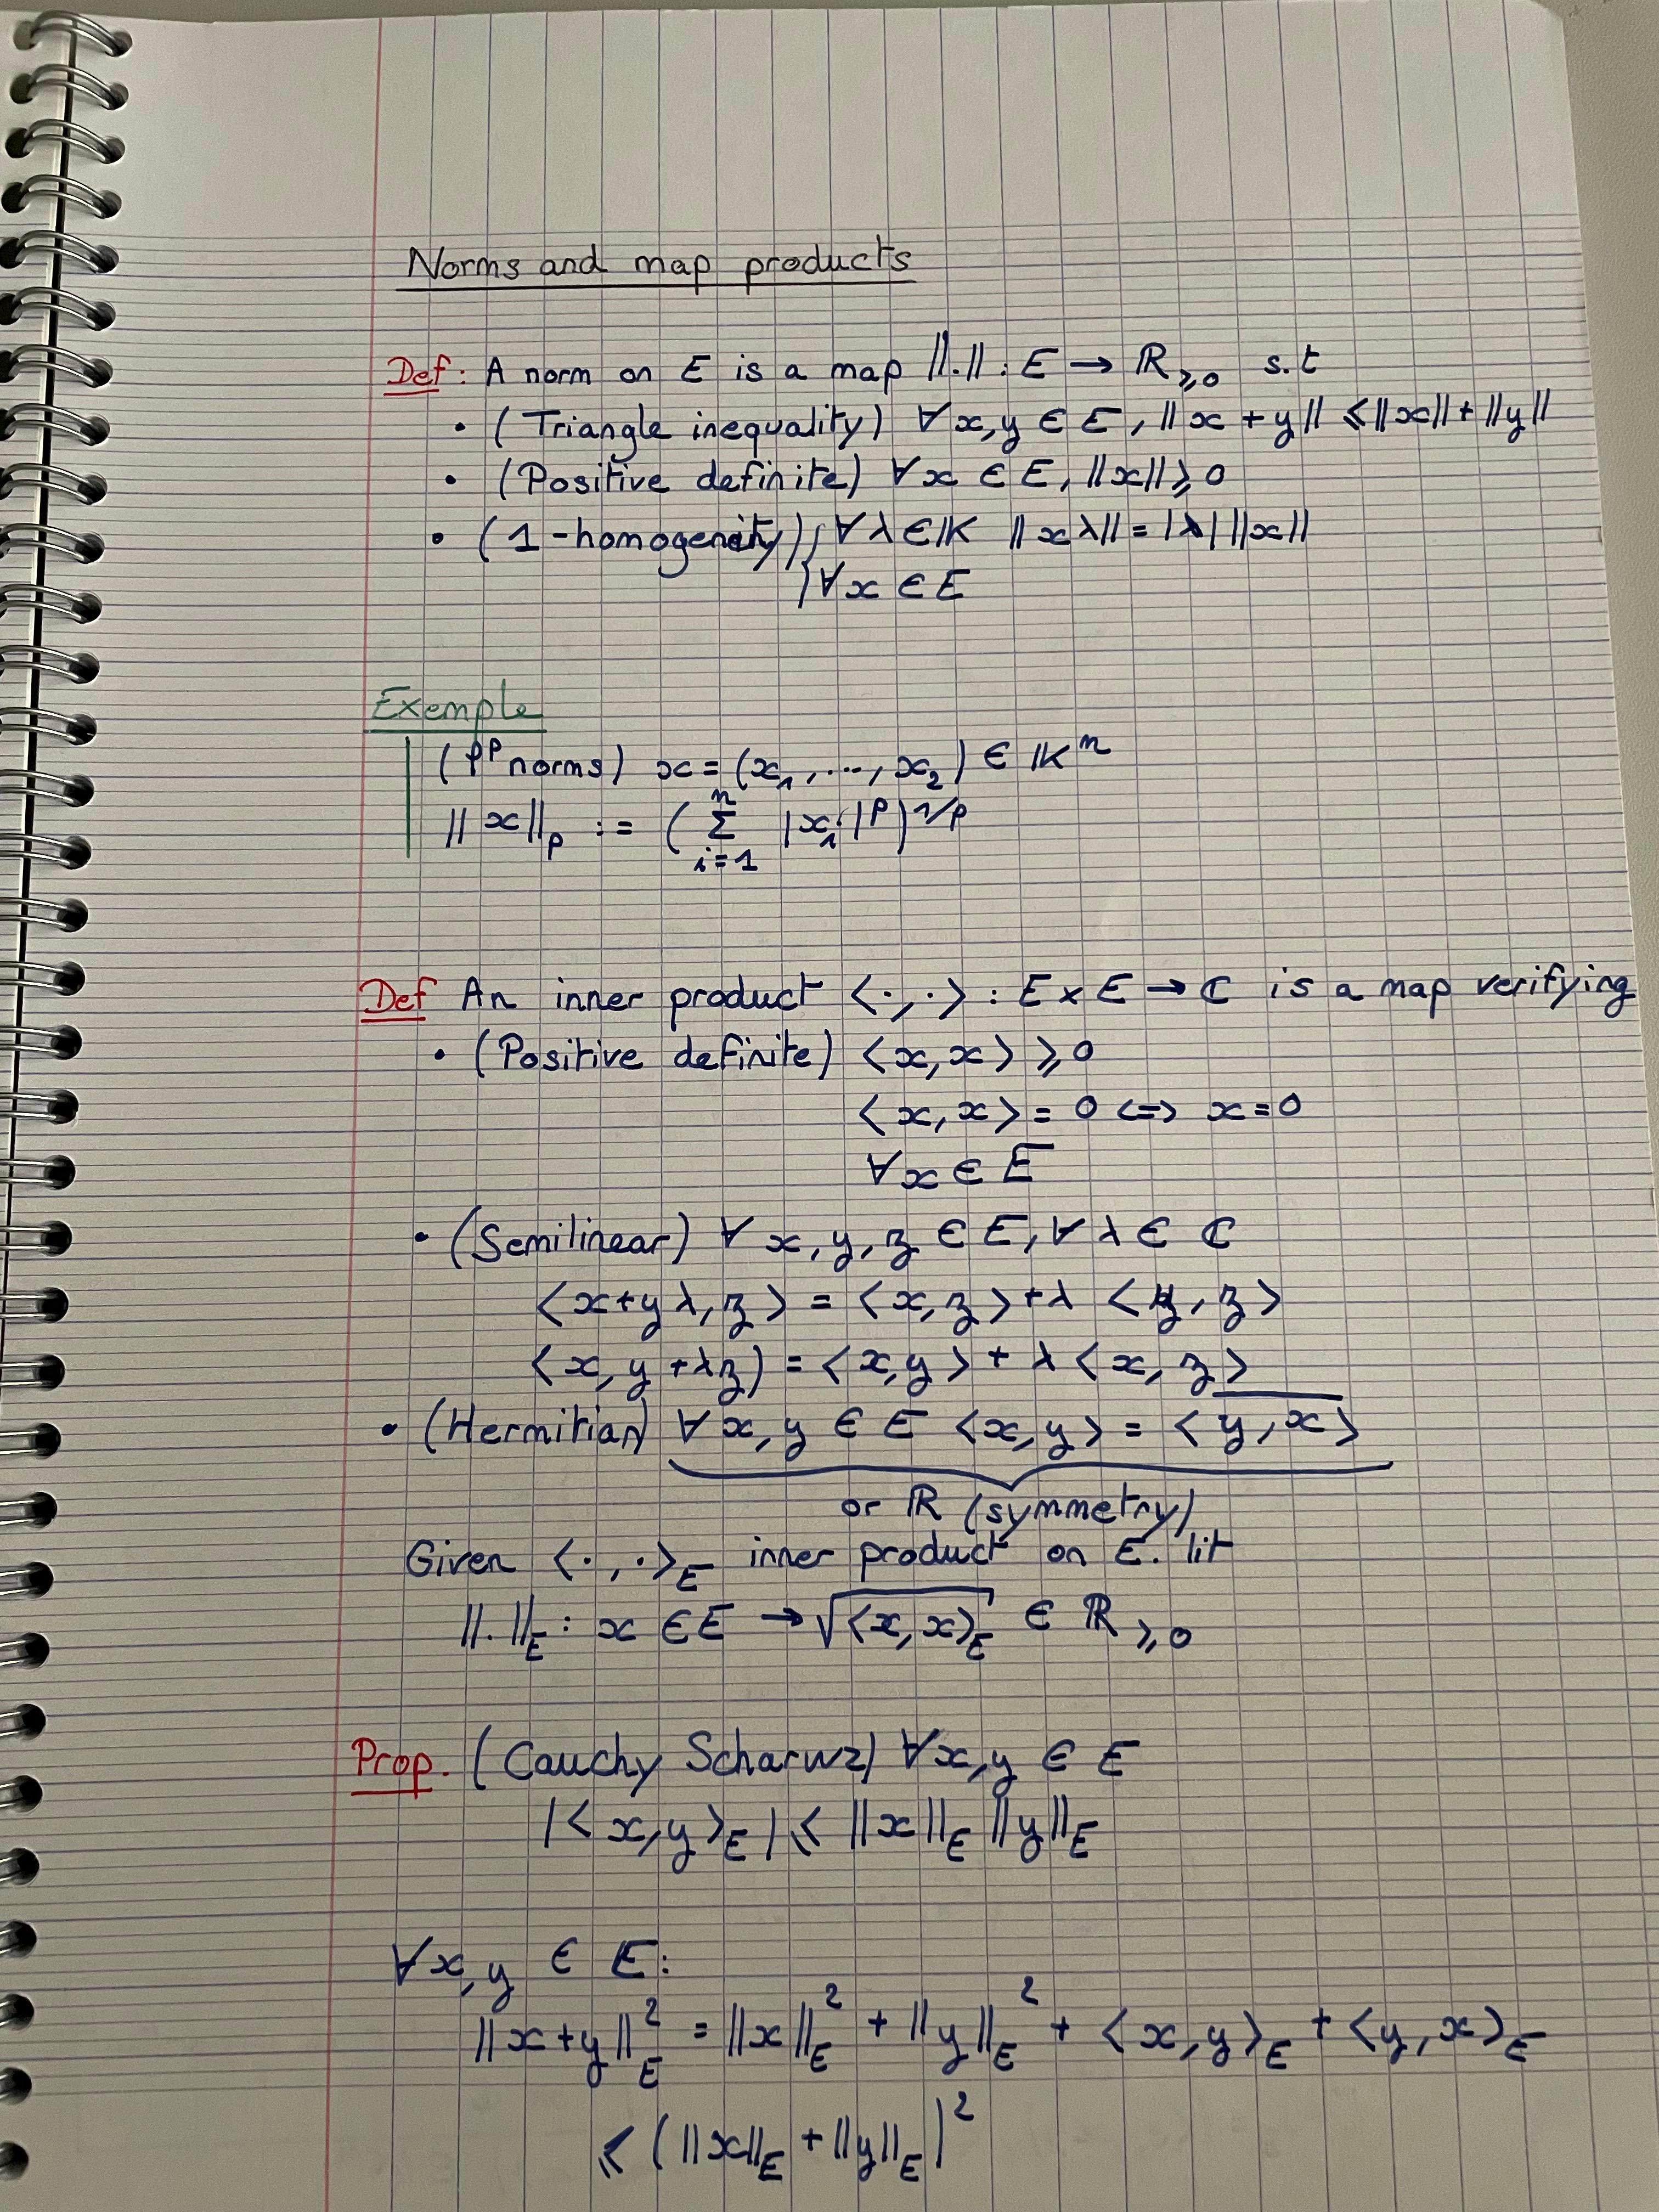 Norms and map products
Def: A norm on E is a map ||.|| : E → ℝ≥0 s.t
• (Triangle inequality) ∀x,y ∈ E, ||x + y|| ≤ ||x|| + ||y||
• (Positive definite) ∀x ∈ E, ||x|| ≥ 0
• (1-homogeneity) { ∀λ ∈ 𝕂 ||xλ|| = |λ| ||x||
∀x ∈ E
Exemple
(ℓᵖ norms) x = (x₁, ..., x₂) ∈ 𝕂ⁿ
||x||_p := (∑_{i=1}^{n} |x_i|^p)^{1/p}
Def An inner product <·,·> : E x E → ℂ is a map verifying
• (Positive definite) <x,x> ≥ 0
<x,x> = 0 <=> x = 0
∀x ∈ E
• (Semilinear) ∀ x, y, z ∈ E, ∀ λ ∈ ℂ
<x+yλ, z> = <x,z> + λ <y, z>
<x, y + λz) = <x,y> + λ <x, z>
• (Hermitian) ∀ x, y ∈ E <x,y> = \overline{<y, x>}
or ℝ (symmetry)
Given <·, ·>_E inner product on E. lit
||.||_E : x ∈ E → √<x,x>_E ∈ ℝ≥0
Prop. (Cauchy Scharwz) ∀x,y ∈ E
|<x,y>_E| ≤ ||x||_E ||y||_E
∀x,y ∈ E:
||x+y||_E² = ||x||_E² + ||y||_E² + <x,y>_E + <y,x>_E
≤ (||x||_E + ||y||_E)²